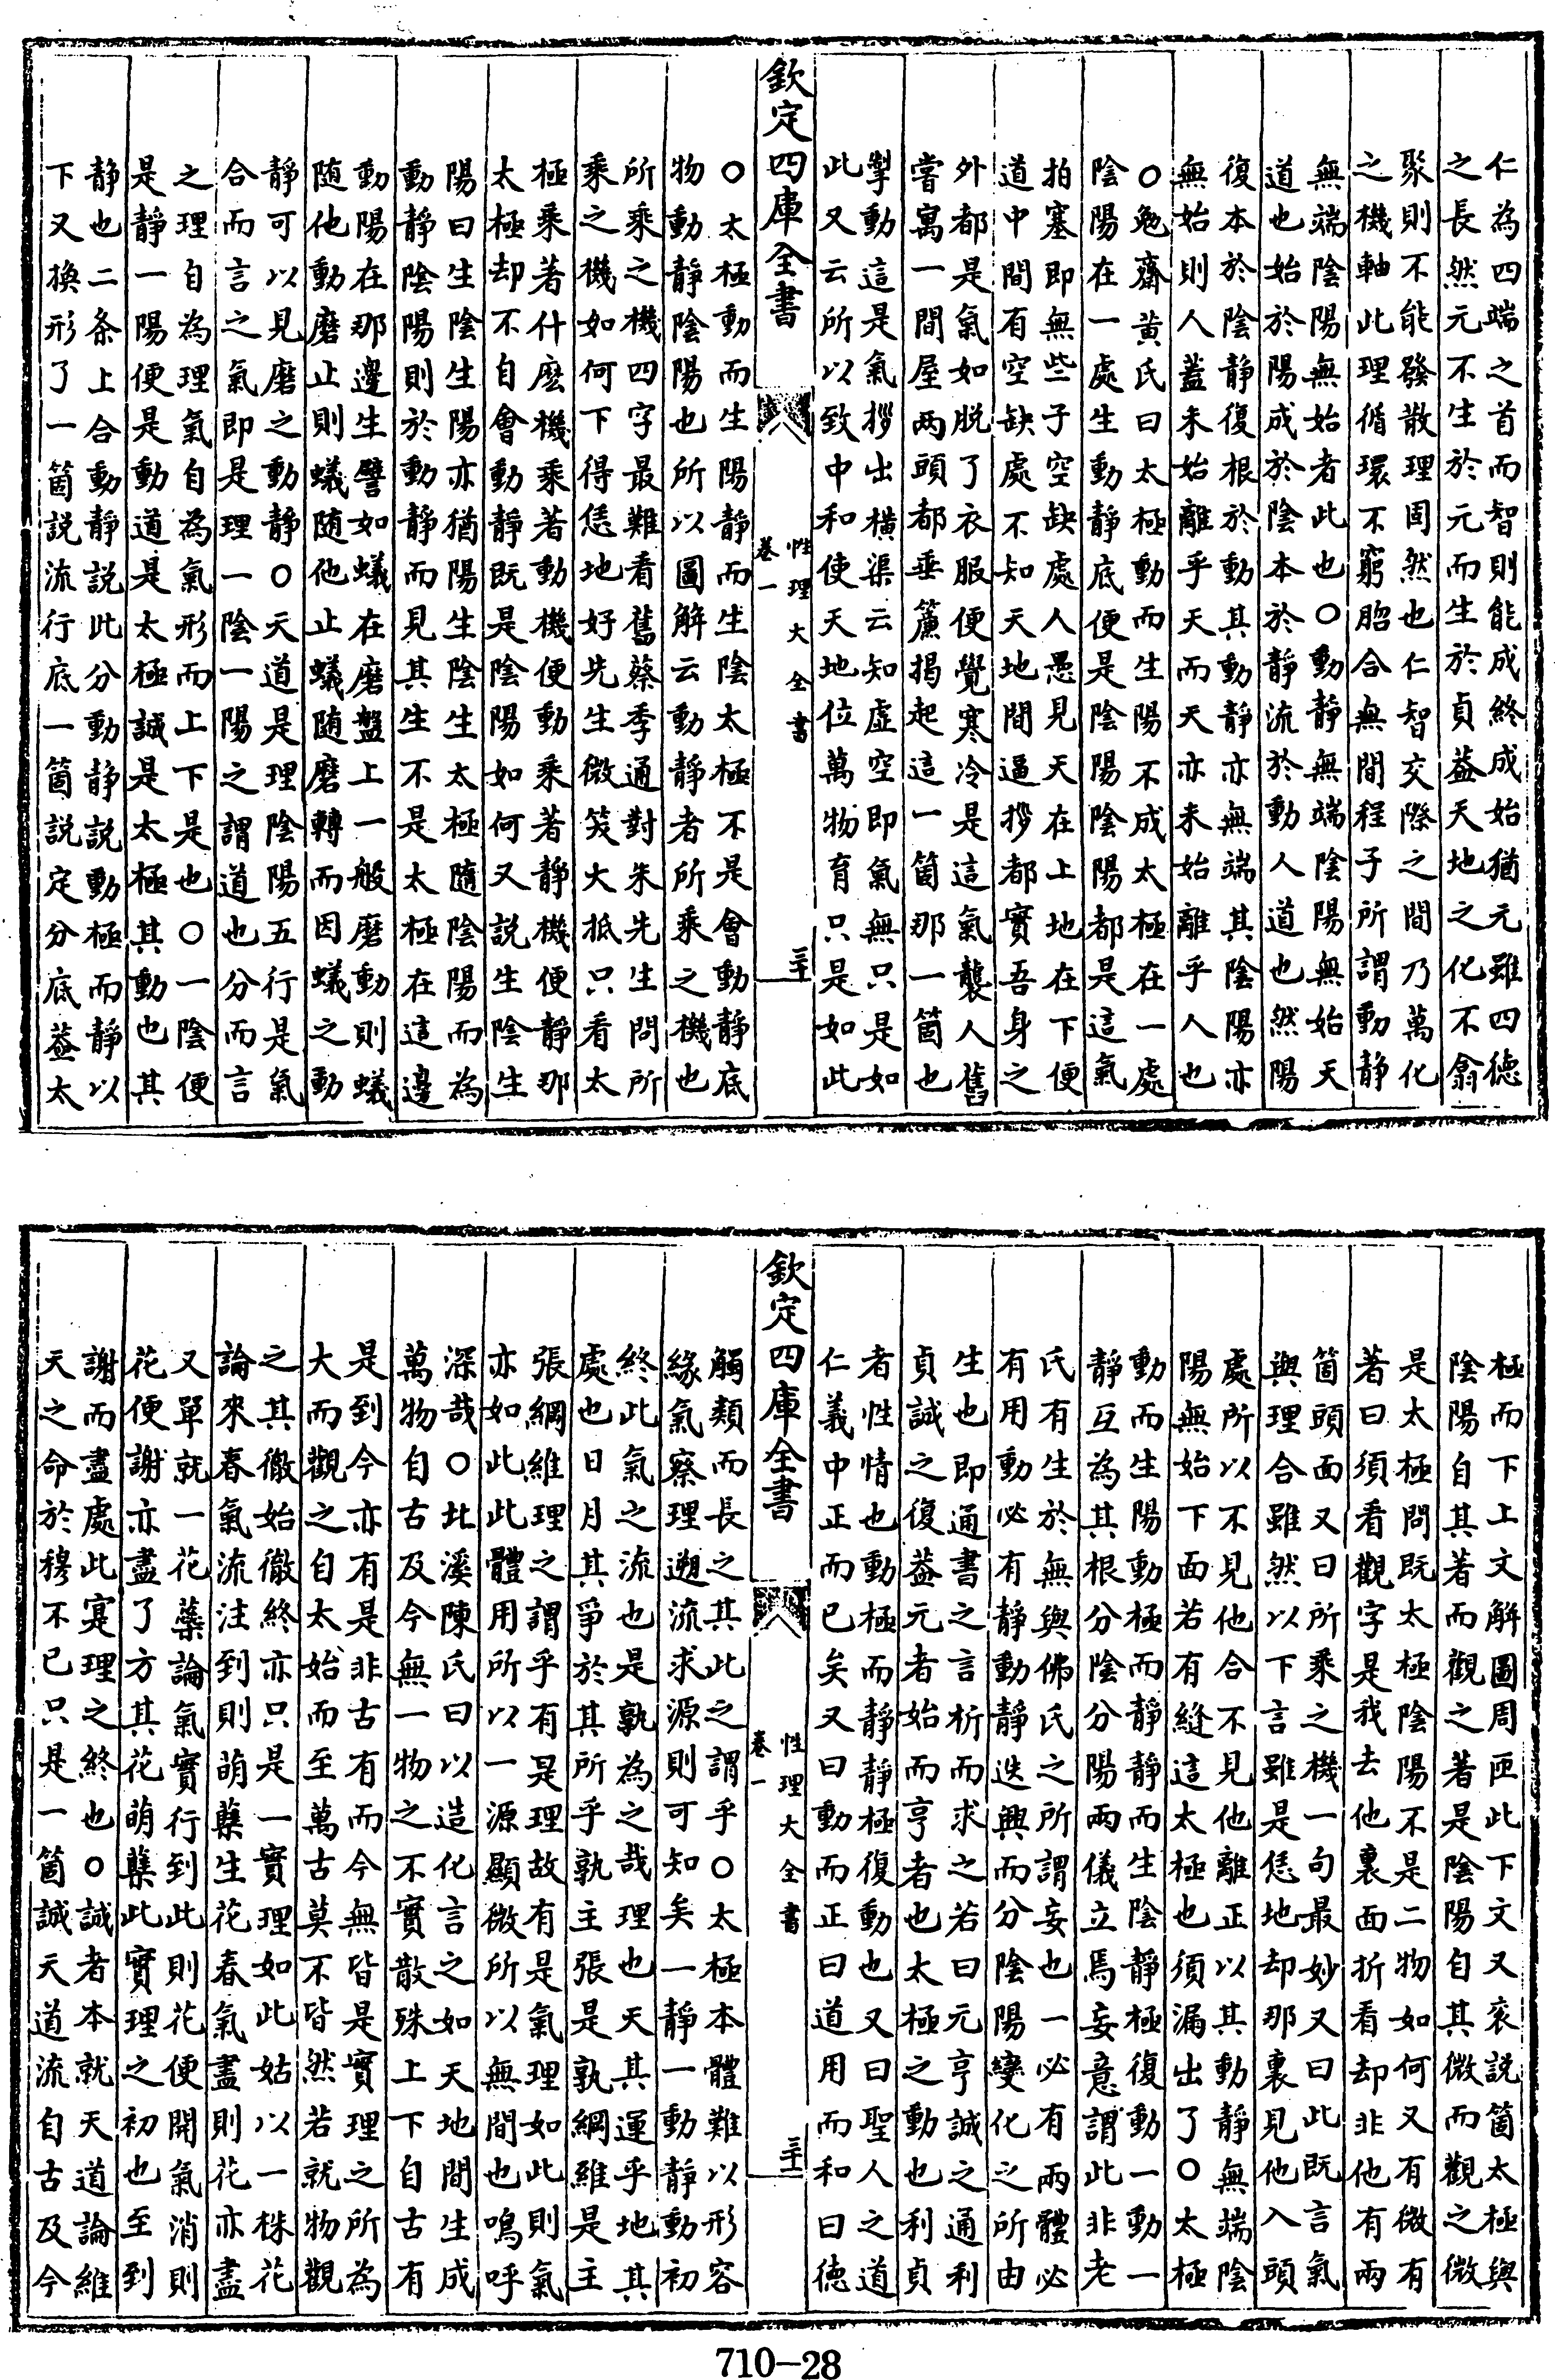 仁為四端之首而智則能成終成始猶元雖四徳
之長然元不生於元而生於貞葢天地之化不翕
聚則不能發散理固然也仁智交際之間乃萬化
之機軸此理循環不窮脗合無間程子所謂動静
無端陰陽無始者此也○動静無端陰陽無始天
道也始於陽成於陰本於静流於動人道也然陽
復本於陰静復根於動其動静亦無端其陰陽亦
無始則人蓋未始離乎天而天亦未始離乎人也
○勉齋黃氏曰太極動而生陽不成太極在一處
陰陽在一處生動静底便是陰陽陰陽都是這氣
拍塞即無些子空缺處人愚見天在上地在下便
道中間有空缺處不知天地間逼拶都實吾身之
外都是氣如脱了衣服便覺寒冷是這氣襲人舊
嘗寓一間屋兩頭都垂簾揭起這一箇那一箇也
掣動這是氣拶出橫渠云知虛空即氣無只是如
此又云所以致中和使天地位萬物育只是如此
欽定四庫全書
性理大全書
卷一
三十
○太極動而生陽静而生陰太極不是會動静底
物動静陰陽也所以圖解云動静者所乘之機也
所乘之機四字最難看舊蔡季通對朱先生問所
乘之機如何下得恁地好先生微笑大抵只看太
極乘著什麽機乘著動機便動乘著静機便静那
太極却不自會動静既是陰陽如何又説生陰生
陽曰生陰生陽亦猶陽生陰生太極隨陰陽而為
動静陰陽則於動静而見其生不是太極在這邊
動陽在那邊生譬如蟻在磨盤上一般磨動則蟻
随他動磨止則蟻随他止蟻随磨轉而因蟻之動
静可以見磨之動静○天道是理陰陽五行是氣
合而言之氣即是理一陰一陽之謂道也分而言
之理自為理氣自為氣形而上下是也○一陰便
是静一陽便是動道是太極誠是太極其動也其
静也二条上合動静説此分動静説動極而静以
下又換形了一箇説流行底一箇説定分底葢太
極而下上文解圖周匝此下文又衮説箇太極與
陰陽自其著而觀之著是陰陽自其微而觀之微
是太極問既太極陰陽不是二物如何又有微有
著曰須看觀字是我去他裏面折看却非他有兩
箇頭面又曰所乘之機一句最妙又曰此既言氣
與理合雖然以下言雖是恁地却那裏見他入頭
處所以不見他合不見他離正以其動静無端陰
陽無始下面若有縫這太極也須漏出了○太極
動而生陽動極而静静而生陰静極復動一動一
静互為其根分陰分陽兩儀立焉妄意謂此非老
氏有生於無與佛氏之所謂妄也一必有兩體必
有用動必有静動静迭興而分陰陽變化之所由
生也即通書之言析而求之若曰元亨誠之通利
貞誠之復葢元者始而亨者也太極之動也利貞
者性情也動極而静静極復動也又曰聖人之道
仁義中正而已矣又曰動而正曰道用而和曰徳
欽定四庫全書
性理大全書
卷一
三十一
觸類而長之其此之謂乎○太極本體難以形容
緣氣察理遡流求源則可知矣一静一動静動初
終此氣之流也是孰為之哉理也天其運乎地其
處也日月其爭於其所乎孰主張是孰綱維是主
張綱維理之謂乎有是理故有是氣理如此則氣
亦如此此體用所以一源顯微所以無間也鳴呼
深哉○北溪陳氏曰以造化言之如天地間生成
萬物自古及今無一物之不實散殊上下自古有
是到今亦有是非古有而今無皆是實理之所為
大而觀之自太始而至萬古莫不皆然若就物觀
之其徹始徹終亦只是一實理如此姑以一株花
論來春氣流注到則萌蘖生花春氣盡則花亦盡
又單就一花蘂論氣實行到此則花便開氣消則
花便謝亦盡了方其花萌蘖此實理之初也至到
謝而盡處此寔理之終也○誠者本就天道論維
天之命於穆不已只是一箇誠天道流自古及今
710-28